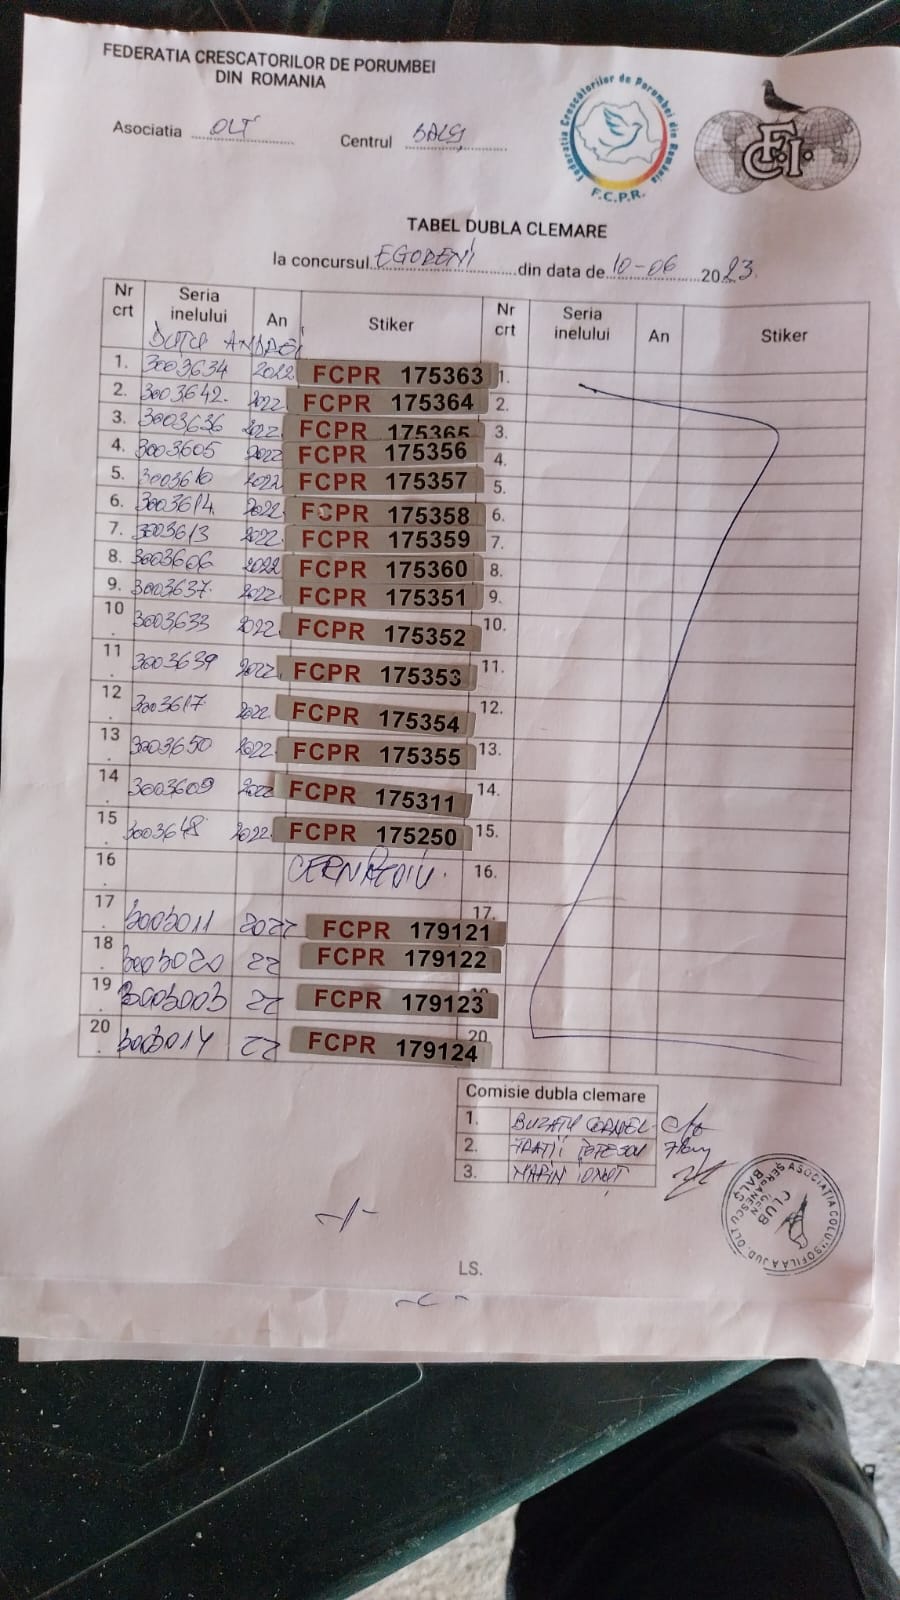 FEDERATIA CRESCATORILOR DE PORUMBEI
DIN ROMANIA
Asociatia OLT Centrul BALȘ
Federatia Crescătorilor de Porumbei din România
F.C.P.R.
F.C.I.
TABEL DUBLA CLEMARE
la concursul EGODENI din data de 10-06 2023.
Nr crt Seria inelului An Stiker Nr crt Seria inelului An Stiker
DUTU ANDREI
1. 3003634 2022 FCPR 175363 1.
2. 3003642. 2022 FCPR 175364 2.
3. 3003636 2022 FCPR 175365 3.
4. 3003605 2022 FCPR 175356 4.
5. 3003610 2022 FCPR 175357 5.
6. 3003614 2022 FCPR 175358 6.
7. 3003613 2022 FCPR 175359 7.
8. 3003606 2022 FCPR 175360 8.
9. 3003637 2022 FCPR 175351 9.
10. 3003633 2022 FCPR 175352 10.
11. 3003639 2022 FCPR 175353 11.
12. 3003617 2022 FCPR 175354 12.
13. 3003650 2022 FCPR 175355 13.
14. 3003609 2022 FCPR 175311 14.
15. 3003648 2022 FCPR 175250 15.
16. 16.
17. 3003011 2022 FCPR 179121 17.
18. 3003020 22 FCPR 179122
19. 3003003 22 FCPR 179123
20. 3003014 22 FCPR 179124 20
Comisie dubla clemare
1. BUZATU CORNEL
2. FRATII
3. MARIN IONUT
LS.
ASOCIATIA COLUMBOFILA JUD. OLT
CLUB
SERBANESCU
BALȘ